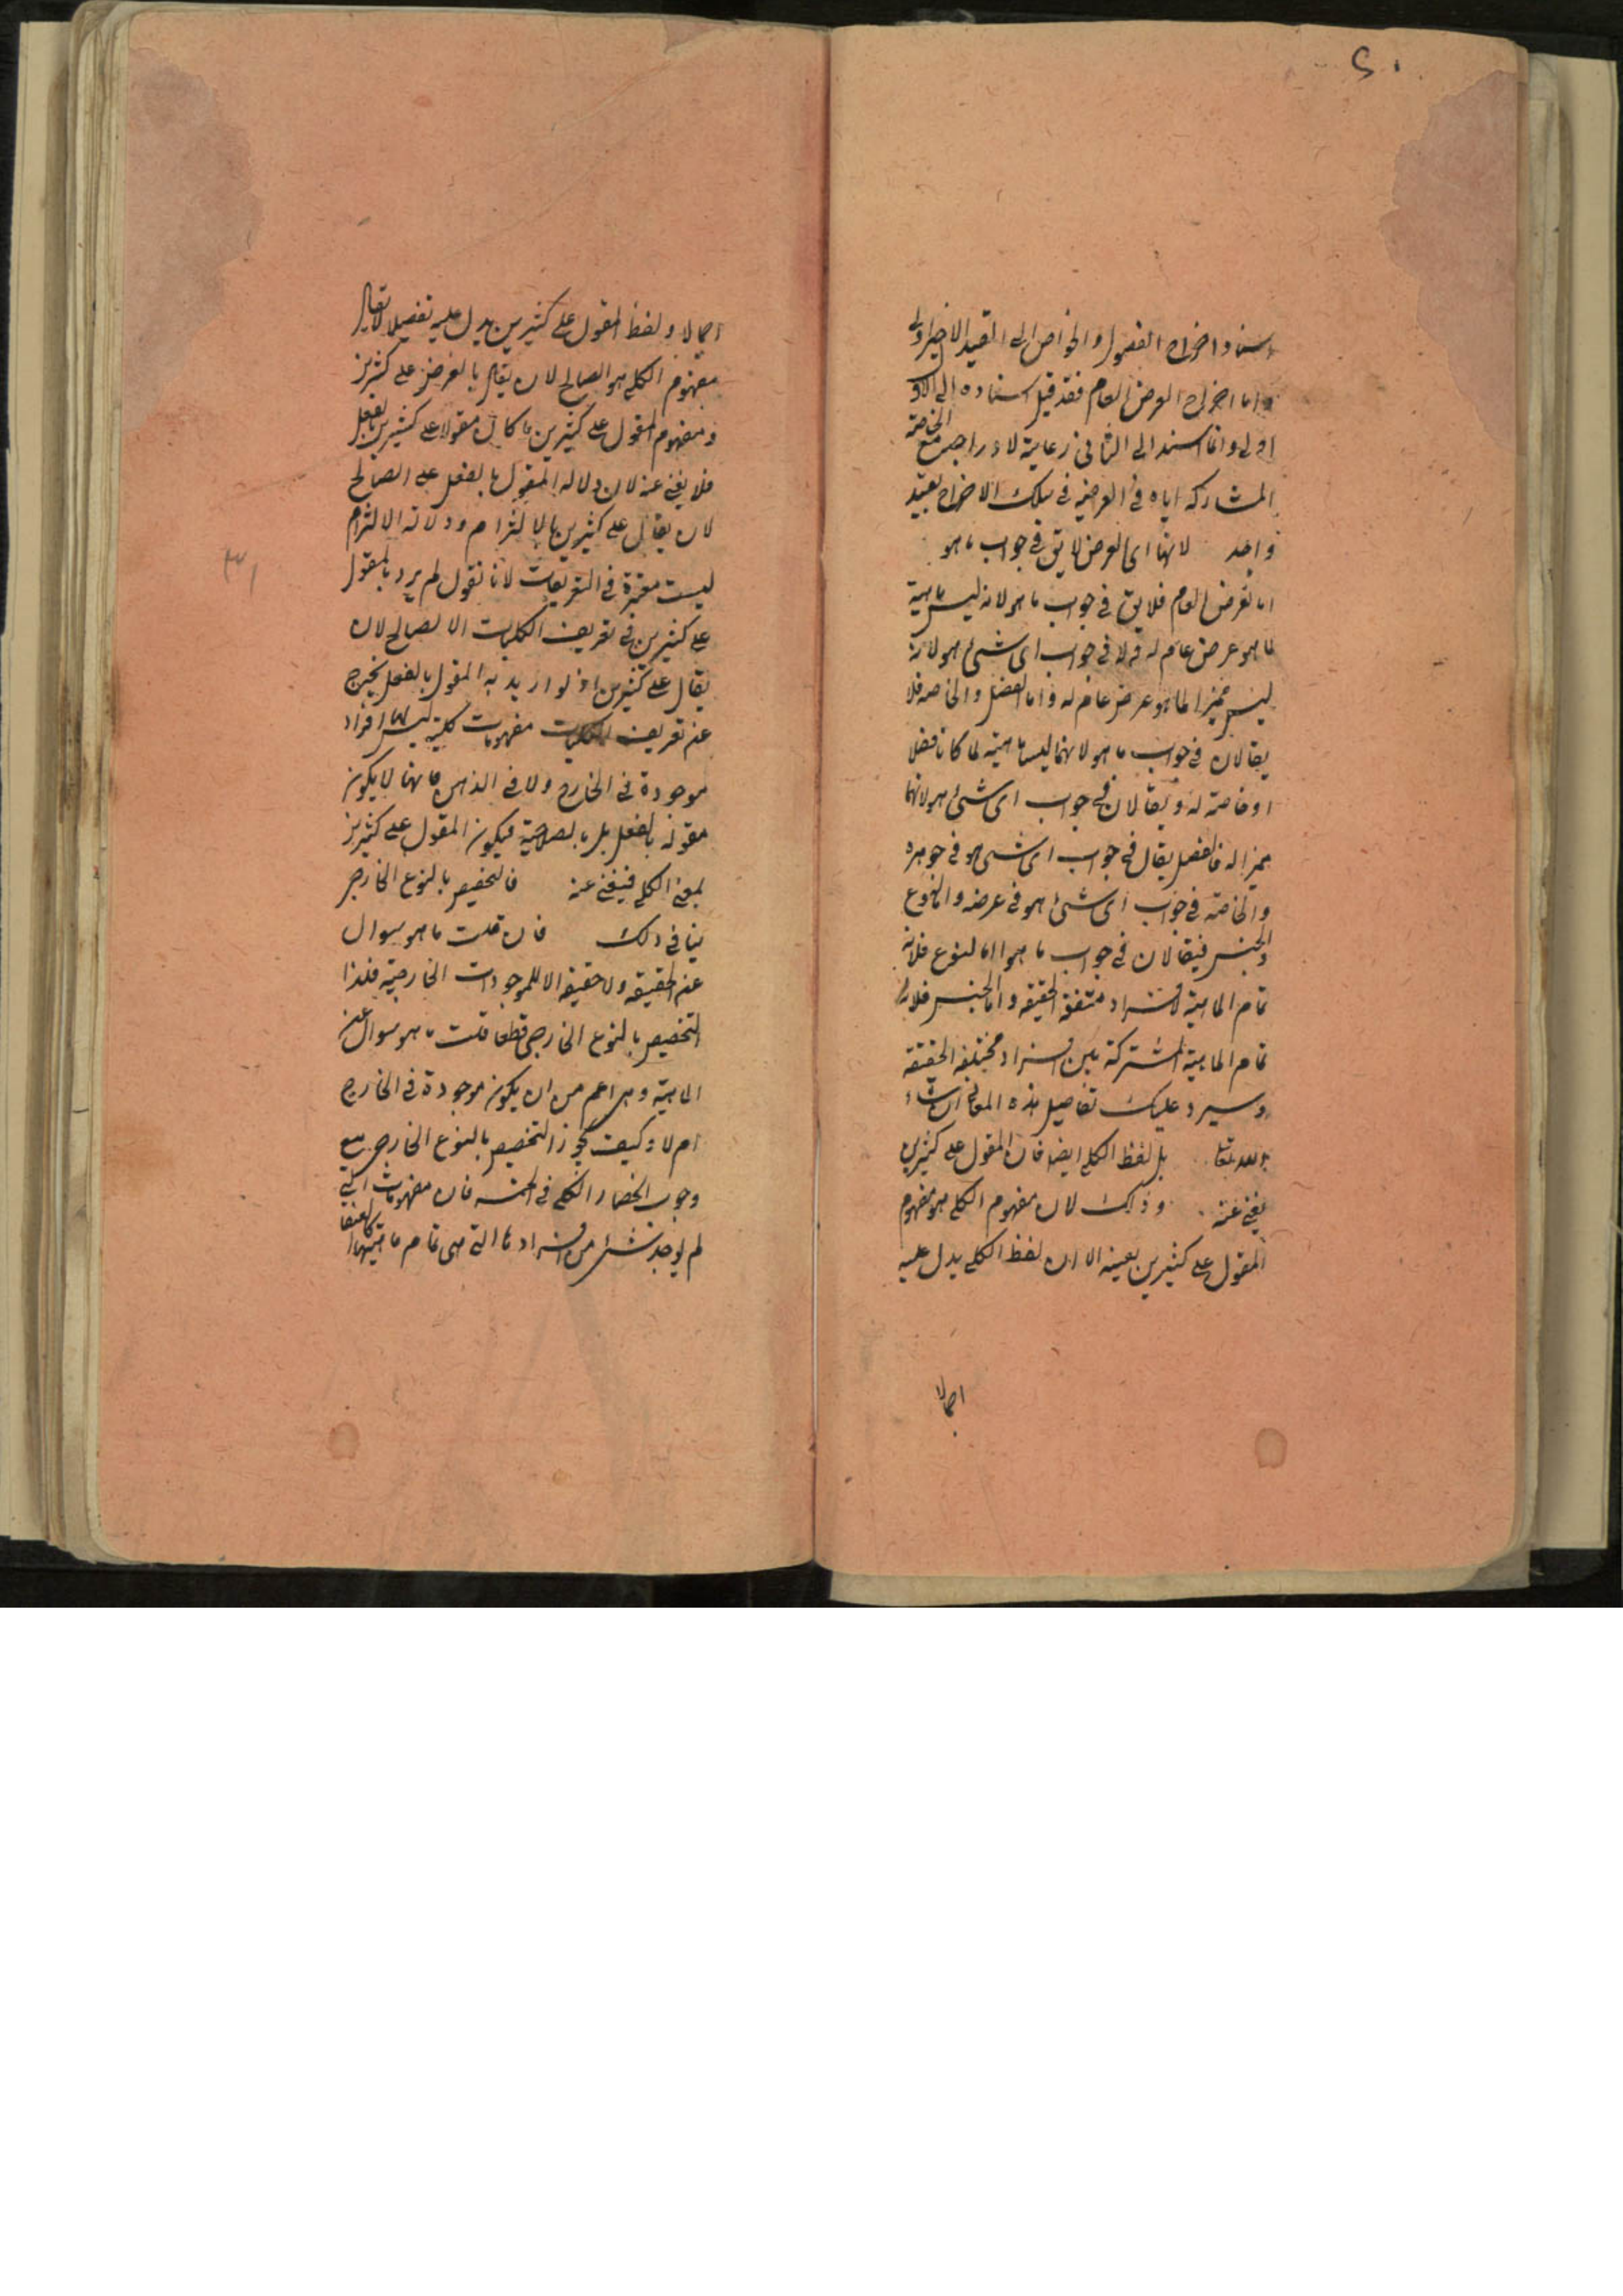 ۲۰
اسناد اخراج الفصول والخواص الى القيد الاخير اولى
واما اخراج العرض العام فقد قيل اسناده الى الاول
اولى وانما اسند الى الثانى رعاية لادراجه مع الخاصة
المشاركة اياه فى العرضية فى سلك الاخراج بقيد
واحد لانها اى العرض لا يق فى جواب ما هو
اما العرض العام فلا يق فى جواب ما هو لانه ليس ماهية
لما هو عرض عام له ولا فى جواب اى شئ هو لانه
ليس مميزا لما هو عرض عام له واما الفصل والخاصة فلا
يقالان فى جواب ما هو لانهما ليسا ماهية لما كانا فصلا
او خاصة له ويقالان فى جواب اى شئ هو لانهما
مميزا له فالفصل يقال فى جواب اى شئ هو فى جوهره
والخاصة فى جواب اى شئ هو فى عرضه واما النوع
والجنس فيقالان فى جواب ما هو اما النوع فلانه
تمام الماهية لافراد متفقة الحقيقة واما الجنس فلانه
تمام الماهية المشتركة بين افراد مختلفة الحقيقة
وسيرد عليك تفاصيل هذه المعانى ان شاء
الله تعا بل لفظ الكلى ايضا فان المقول على كثيرين
يغنى عنه وذلك لان مفهوم الكلى هو مفهوم
المقول على كثيرين بعينه الا ان لفظ الكلى يدل عليه
اجمالا
اجمالا ولفظ المقول على كثيرين يدل عليه تفصيلا لا يقال
مفهوم الكلى هو الصالح لان يقال بالفرض على كثيرين
ومفهوم المقول على كثيرين ما كان مقولا على كثيرين بالفعل
فلا يغنى عنه لان دلالة المقول بالفعل على الصالح
لان يقال على كثيرين بالالتزام ودلالة الالتزام
ليست معتبرة فى التعريفات لانا نقول لم يرد بالمقول
على كثيرين فى تعريف الكليات الا الصالح لان
يقال على كثيرين اذ لو اريد به المقول بالفعل يخرج
عن تعريف الكليات مفهومات كلية ليس لها افراد
موجودة فى الخارج ولا فى الذهن فانها لا يكون
مقولة بالفعل بل بالصلاحية فيكون المقول على كثيرين
بمعنى الكلى فيغنى عنه فالتخصيص بالنوع الخارجى
ينافى ذلك فان قلت ما هو سوال
عن الحقيقة ولا حقيقة الا للموجودات الخارجية فلذا
التخصيص بالنوع الخارجى قطعا قلت ما هو سوال عن
الماهية وهى اعم من ان يكون موجودة فى الخارج
ام لا وكيف يجوز التخصيص بالنوع الخارجى مع
وجوب انحصار الكلى فى الخمسة فان مفهومات التى
لم يوجد شئ من افرادها التى هى تمام ماهيتها كالعنقا